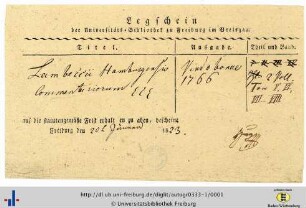 Legschein
der Universitäts-Bibliothek zu Freiburg im Breisgau.
Titel. Ausgabe. Theil und Band.
Lambecii Hamburgensis Vindobonae 2 Voll.
Commentariorum 1766 Tom
auf die statutengemäße Frist erhalten zu haben, bescheint
Freiburg den 20t Januar 1823.
http://dl.ub.uni-freiburg.de/diglit/autogr0333-1/0001
© Universitätsbibliothek Freiburg
Baden-Württemberg